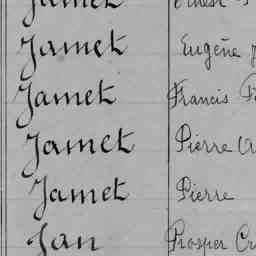 Jamet Ernest
Jamet Eugène
Jamet Francis
Jamet Pierre
Jamet Pierre
Jan Prosper